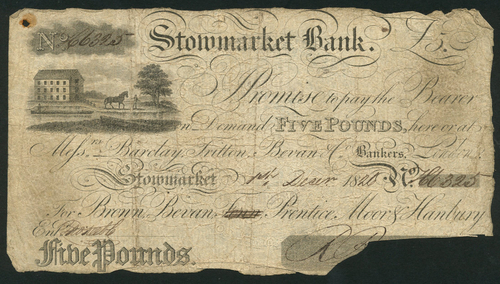 No 66325
Stowmarket Bank. £5.
I Promise to pay the Bearer
on Demand FIVE POUNDS, here or at
Messrs Barclay, Tritton, Bevan & Co Bankers, London.
Stowmarket 1st Decr 1820 No 66325
For Brown, Bevan, Prentice, Moor & Hanbury
Entd
Five Pounds.